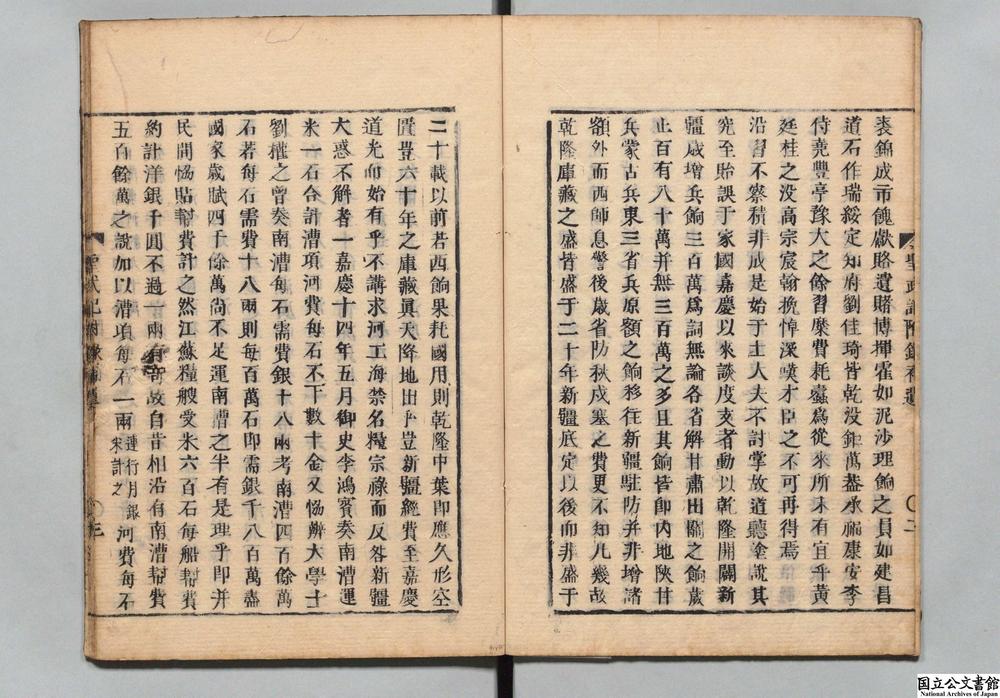 裘錦成市餽獻賂遺賭博揮霍如泥沙理餉之員如建昌
道石作瑞綏定知府劉佳琦皆乾没鉅萬葢承福康安李
侍堯豐亨豫大之餘習縻費耗蠹爲從來所未有宜乎黃
廷桂之没高宗宸翰挽悼深嘆才臣之不可再得焉
沿習不察積非成是始于士大夫不討掌故道聽塗說其
究至貽誤于家國嘉慶以來談度支者動以乾隆開闢新
疆歲增兵餉三百萬爲詞無論各省解甘肅出關之餉歲
止百有八十萬并無三百萬之多且其餉皆卽内地陜甘
兵蒙古兵東三省兵原額之餉移往新疆駐防并非增諸
額外而西師息警後歲省防秋戍塞之費更不知凡幾故
乾隆庫藏之盛皆盛于二十年新疆底定以後而非盛于
二十載以前若西餉果耗國用則乾隆中葉即應久形空
匱豈六十年之庫藏眞天降地出乎豈新疆經費至嘉慶
道光而始有乎不講求河工海禁名糧宗祿而反咎新疆
大惑不解者一嘉慶十四年五月御史李鴻賓奏南漕運
米一石合計漕項河費每石不下數十金又協辨大學士
劉權之曾奏南漕每石需費銀十八兩考南漕四百餘萬
石若每石需費十八兩則每百萬石即需銀千八百萬盡
國家歲賦四千餘萬尚不足運南漕之半有是理乎即并
民間協貼幫費計之然江蘇糧艘受米六百石每船幫費
約計洋銀千圓不過一兩有奇故自昔相沿有南漕幫費
五百餘萬之說加以漕項每石一兩連行月銀米計之河費每石